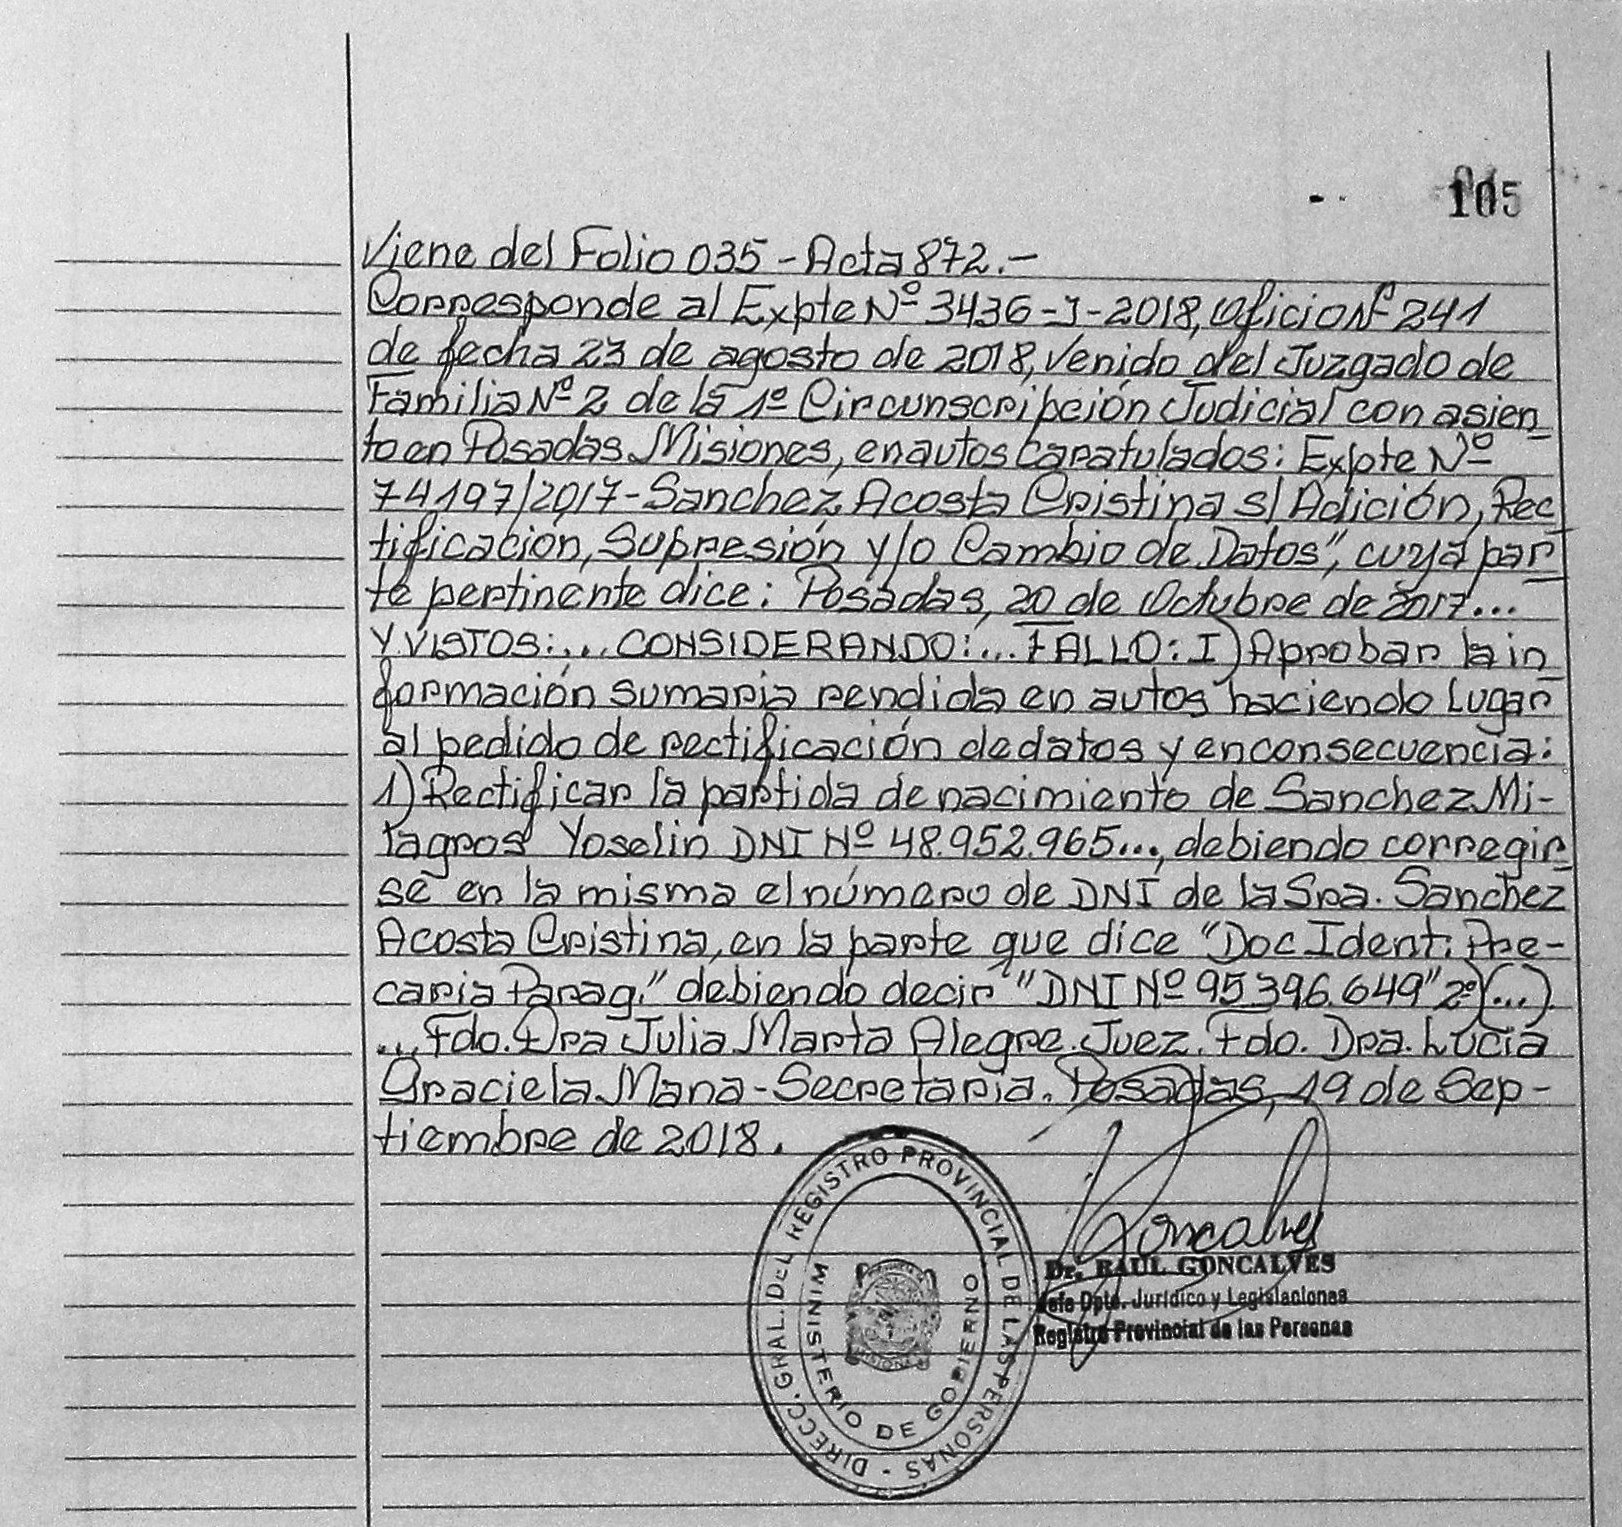 105
Viene del Folio 035 - Acta 872.-
Corresponde al Expte Nº 3436-J-2018, Oficio Nº 241
de fecha 23 de agosto de 2018, venido del Juzgado de
Familia Nº 2 de la 1º Circunscripción Judicial con asien
to en Posadas Misiones, en autos caratulados: Expte Nº
74197/2017-Sanchez Acosta Cristina s/ Adición, Rec
tificación, Supresión y/o Cambio de Datos", cuya par
te pertinente dice: Posadas, 20 de Octubre de 2017...
Y VISTOS:... CONSIDERANDO:... FALLO: I) Aprobar la in
formación sumaria rendida en autos haciendo lugar
al pedido de rectificación de datos y en consecuencia:
1) Rectificar la partida de nacimiento de Sanchez Mi-
lagros Yoselin DNI Nº 48.952.965..., debiendo corregir
se en la misma el número de DNI de la Sra. Sanchez
Acosta Cristina, en la parte que dice "Doc Ident: Pre-
caria Parag." debiendo decir "DNI Nº 95.396.649" 2º)(...)
... Fdo. Dra Julia Marta Alegre. Juez. Fdo. Dra. Lucia
Graciela Mana - Secretaria. Posadas, 19 de Sep-
tiembre de 2018.
DIRECC. GRAL. DEL REGISTRO PROVINCIAL DE LAS PERSONAS -
MINISTERIO DE GOBIERNO
MISIONES
Goncalves
Dr. RAUL GONCALVES
Jefe Dpto. Jurídico y Legislaciones
Registro Provincial de las Personas